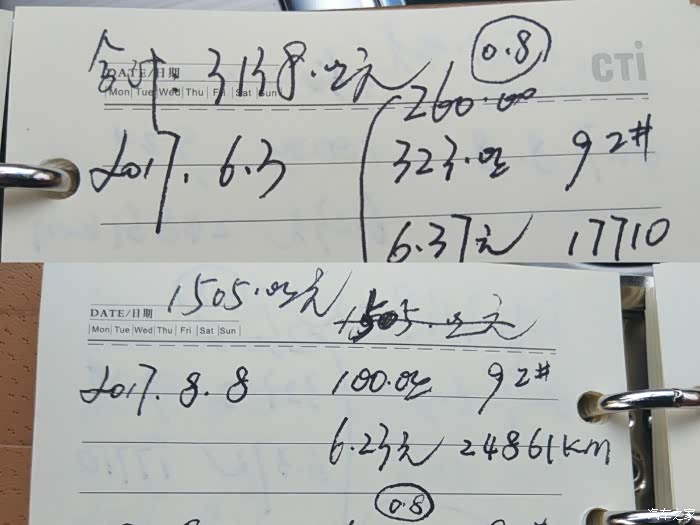 合计: 3138.00元 0.8
CTi
DATE/日期
Mon Tue Wed Thu Fri Sat Sun
260.00
2017.6.3 323.00 92#
6.37元 17710
1505.00元
DATE/日期 1505.00元
Mon Tue Wed Thu Fri Sat Sun
2017.8.8 100.00 92#
6.23元 24861KM
0.8
汽车之家